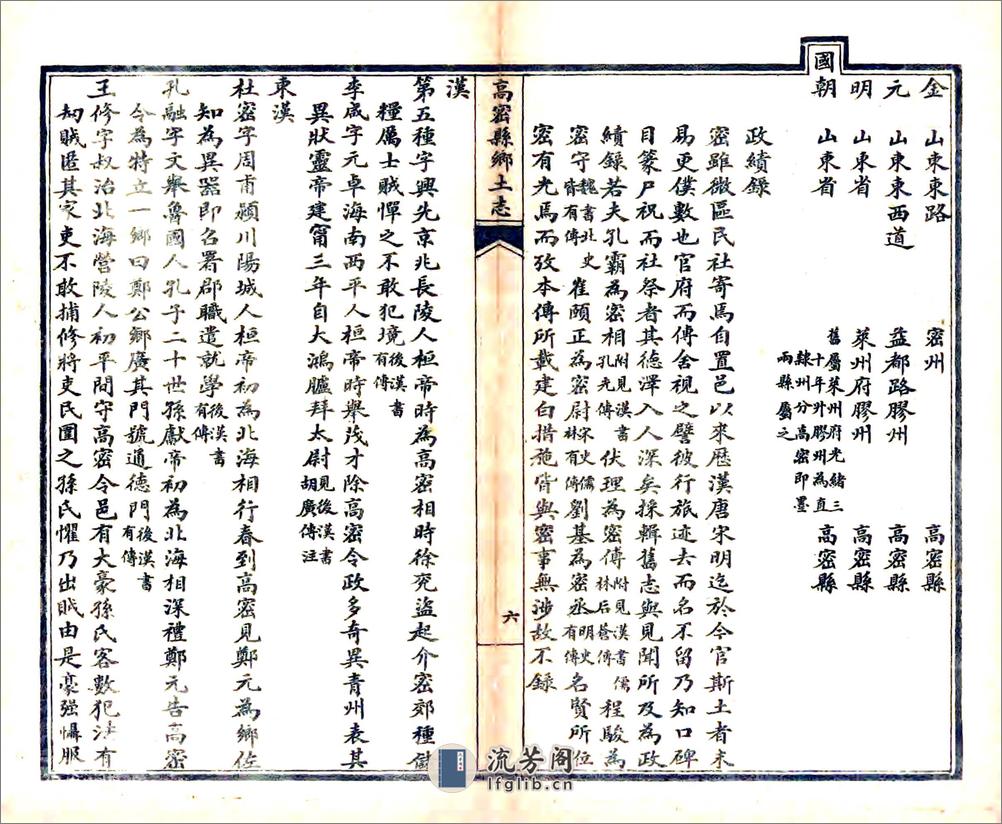 金　山東東路　密州　高密縣
元　山東東西道　益都路膠州　高密縣
明　山東省　萊州府膠州　高密縣
國朝　山東省　舊屬萊州府光緒三十年升膠州為直隸州分高密即墨兩縣屬之　高密縣
政績錄
密雖微區民社寄焉自置邑以來歷漢唐宋明迄於今官斯土者未
易更僕數也官府而傳舍視之譬彼行旅迹去而名不留乃知口碑
目篆尸祝而社祭者其德澤入人深矣採輯舊志與見聞所及為政
績錄若夫孔霸為密相附見漢書孔光傳伏理為密傳附見漢書儒林后蒼傳程駿為
密守魏書北史有傳崔頤正為密尉宋史儒林有傳劉基為密丞明史有傳名賢所位
密有光焉而攷本傳所載建白措施皆與密事無涉故不錄
高密縣鄉土志
六
漢
第五種字興先京兆長陵人桓帝時為高密相時徐兗盜起介密郊種儲
糧厲士賊憚之不敢犯境後漢書有傳
李咸字元卓海南西平人桓帝時舉茂才除高密令政多奇異青州表其
異狀靈帝建甯三年自大鴻臚拜太尉見後漢書胡廣傳注
東漢
杜密字周甫潁川陽城人桓帝初為北海相行春到高密見鄭元為鄉佐
知為異器即召署郡職遣就學後漢書有傳
孔融字文舉魯國人孔子二十世孫獻帝初為北海相深禮鄭元告高密
令為特立一鄉曰鄭公鄉廣其門號通德門後漢書有傳
王修字叔治北海營陵人初平間守高密令邑有大豪孫氏客數犯法有
刧賊匿其家吏不敢捕修將吏民圍之孫氏懼乃出賊由是豪强懾服
流芳阁
lfglib.cn